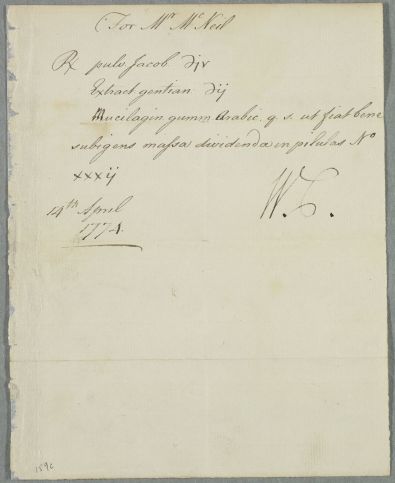 For Mr Mc Neil
℞ pulv Jacob ℈iv
Extract gentian ℈ij
Mucilagin gumm Arabic. q. s. ut fiat bene
subigens massa dividenda in pilulas No
xxxij
14th April
1774.
W.